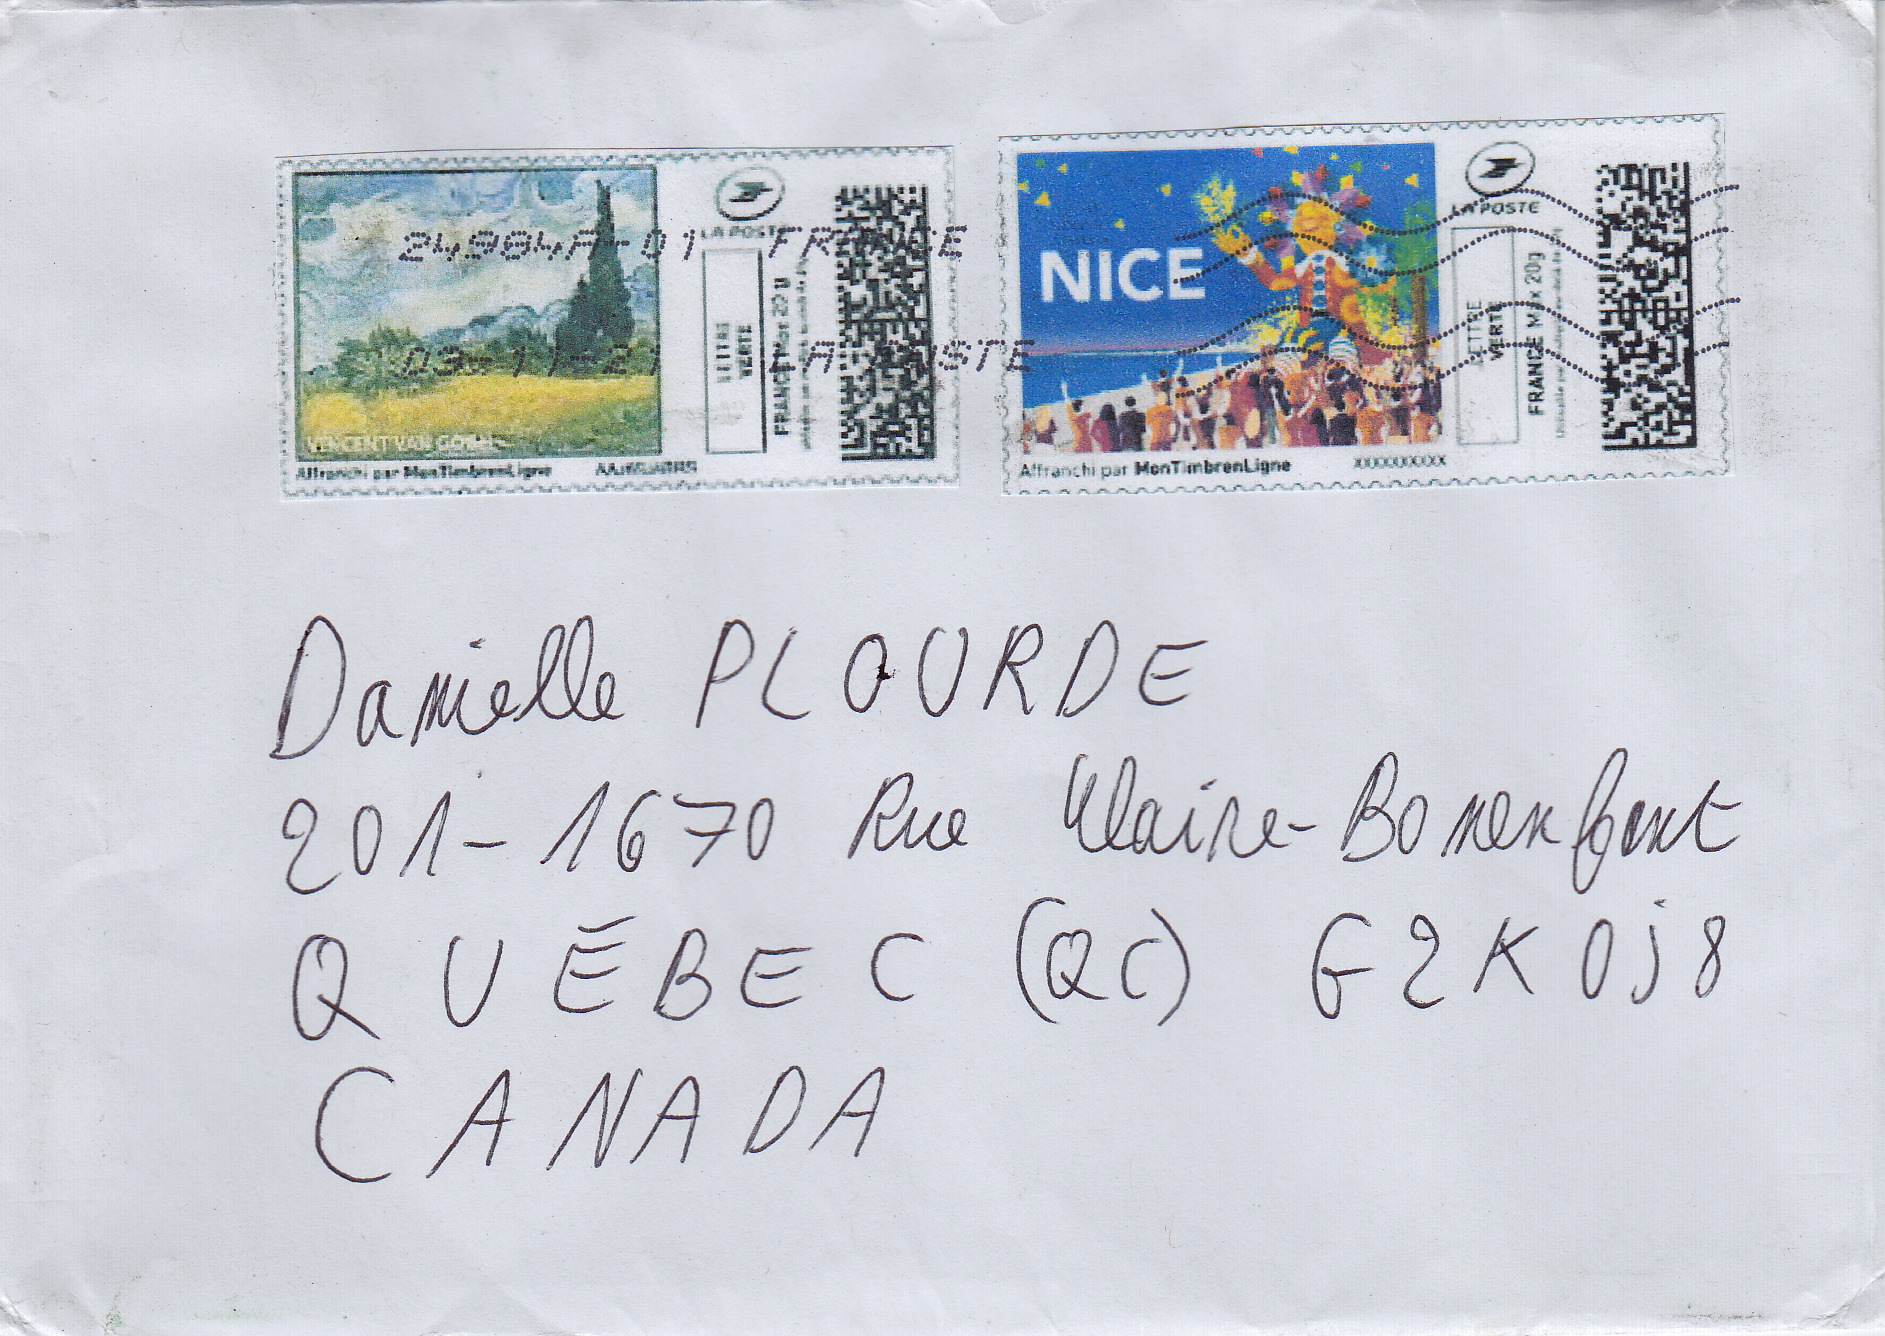 24984A-01 FRANCE
03-11-21 LA POSTE
VINCENT VAN GOGH
Affranchi par MonTimbrenLigne
LA POSTE
VERTE
NICE
LA POSTE
LETTRE
VERTE
FRANCE MAX 20g
Affranchi par MonTimbrenLigne
XXXXXXXXXX
Danielle PLOURDE
201-1670 Rue Claire-Bonenfant
QUÉBEC (QC) G2K 0j8
CANADA